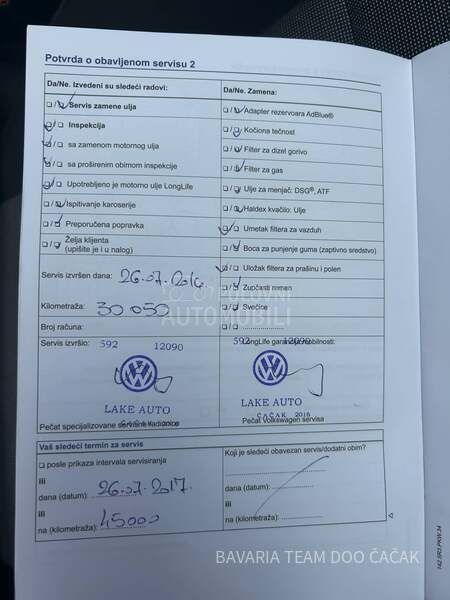 Potvrda o obavljenom servisu 2
Da/Ne. Izvedeni su sledeći radovi:
Da/Ne. Zamena:
❏/❏ Servis zamene ulja
❏/❏ Adapter rezervoara AdBlue®
❏/❏ Inspekcija
❏/❏ Kočiona tečnost
❏/❏ sa zamenom motornog ulja
❏/❏ Filter za dizel gorivo
❏/❏ sa proširenim obimom inspekcije
❏/❏ Filter za gas
❏/❏ Upotrebljeno je motorno ulje LongLife
❏/❏ Ulje za menjač: DSG®, ATF
❏/❏ Ispitivanje karoserije
❏/❏ Haldex kvačilo: Ulje
❏/❏ Preporučena popravka
❏/❏ Umetak filtera za vazduh
❏/❏ Želja klijenta
(upišite je i u nalog)
❏/❏ Boca za punjenje guma (zaptivno sredstvo)
❏/❏ Uložak filtera za prašinu i polen
Servis izvršen dana: 26.07.2016
❏/❏ Zupčasti remen
Kilometraža: 30 050
❏/❏ Svećice
POLOVNI
AUTOMOBILI
Broj računa:
❏/❏
Servis izvršio: 592 12090
592 12090
LongLife garancija mobilnosti:
LAKE AUTO
LAKE AUTO
ČAČAK 2016
Pečat specijalizovane servisne radionice
Pečat Volkswagen servisa
Vaš sledeći termin za servis
❏ posle prikaza intervala servisiranja
Koji je sledeći obavezan servis/dodatni obim?
ili
dana (datum): 26.07.2017.
dana (datum):
ili
ili
na (kilometraža): 45000
na (kilometraža):
142.5R3.PKW.34
BAVARIA TEAM DOO ČAČAK